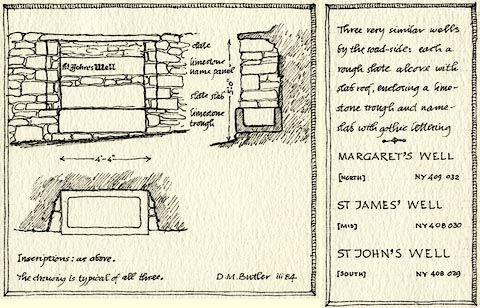 slate
St. John's Well
limestone
name panel
slate slab
3'-0"
limestone
trough
4'-4"
Inscriptions: as above.
The drawing is typical of all three.
D.M. Butler iii 84
Three very similar wells
by the road-side: each a
rough slate alcove with
slab roof, enclosing a lime-
stone trough and name-
slab with gothic lettering
MARGARET'S WELL
[NORTH] NY 409 032
ST JAMES' WELL
[MID] NY 408 030
ST JOHN'S WELL
[SOUTH] NY 408 029